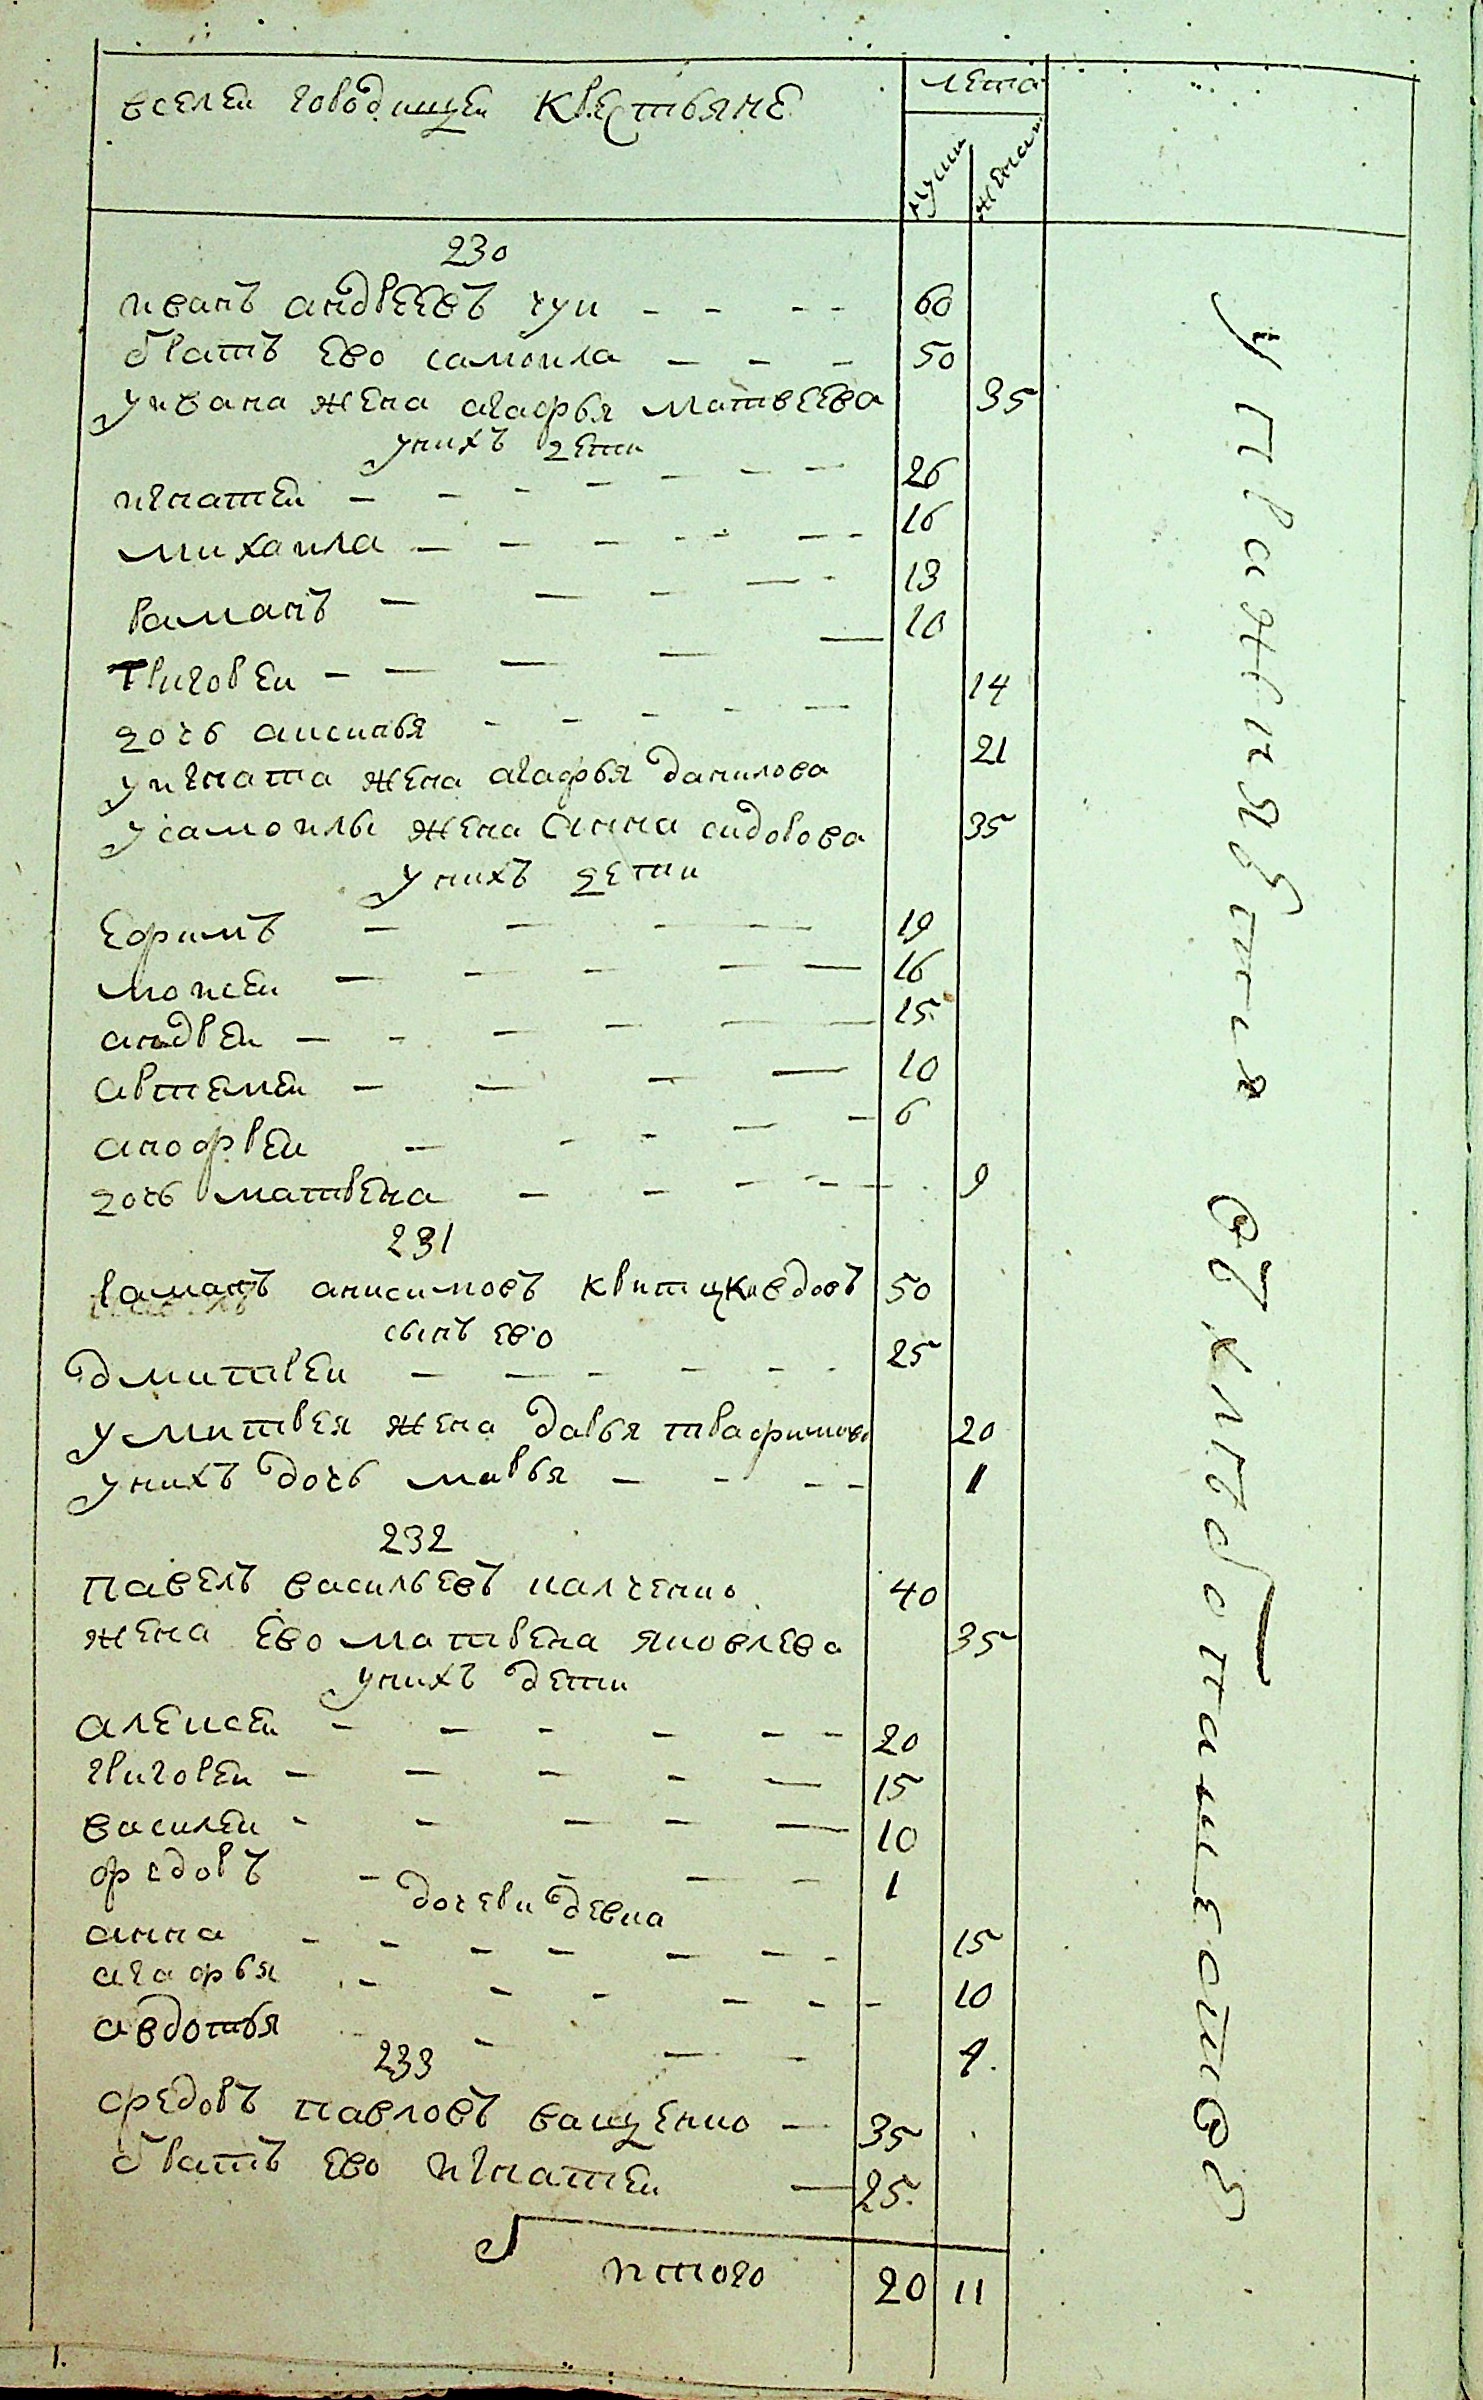 вселеи городищеи крестьяне
лета
мужи
женан
230
иванъ андреевъ куц 60
братъ ево самоила 50
уивана жена агафья матвеева 35
унихъ дети
игнатеи 26
михаила 16
раманъ 13
григореи 10
дочь аксинья 14
уигната жена агафья данилова 21
усамоилы жена анна сидорова 35
унихъ дети
ефимъ 19
моисеи 16
андреи 15
артемеи 10
анофреи 6
дочь матрена 9
231
раманъ анисимовъ 50
сынъ ево
дмитреи 25
умитрея жена дарья трафимова 20
унихъ дочь марья 1
232
павелъ васильевъ калченко 40
жена ево матрена яковлева 35
унихъ дети
алексеи 20
григореи 15
василеи 10
федоръ 1
дочери девки
анна 15
агафья 10
авдотья 4
233
федоръ павловъ ващенко 35
братъ ево игнатеи 25
итого 20 11